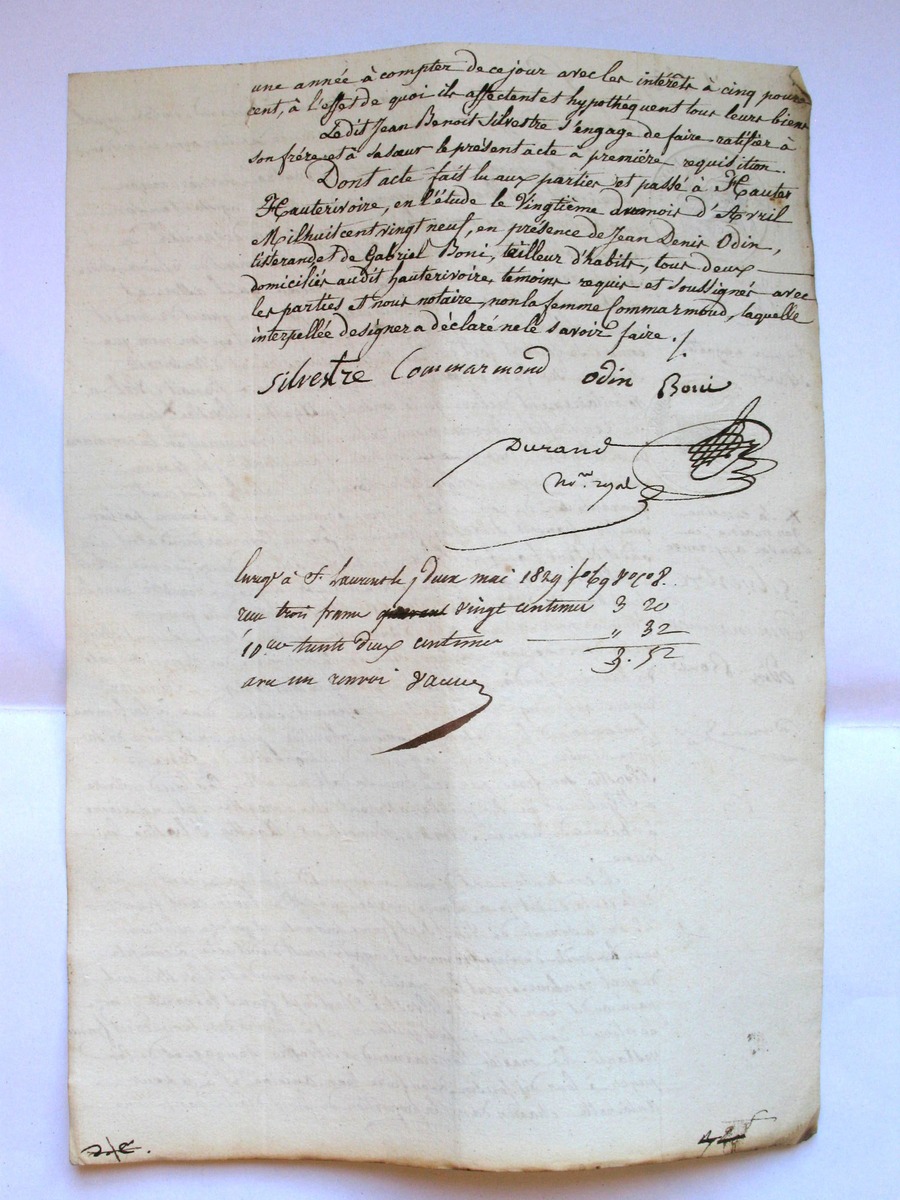 une année à compter de ce jour avec les intérêts à cinq pour
cent, à l'effet de quoi ils affectent et hypothéquent tous leurs biens
Ledit Jean Benoit Silvestre s'engage de faire ratifier à
son frére et à sa sœur le présent acte à premiére requisition.
Dont acte fait lu aux parties et passé à Hautes
Hauterivoire, en l'étude le Vingtième du mois d'Avril
Mil huit cent vingt neuf, en présence de Jean Denis Odin,
tisserand et de Gabriel Boni, tailleur d'habits, tous deux
domiciliés audit hauterivoire, témoins requis et soussignés avec
les parties et nous notaire, non la femme Commarmond, laquelle
interpellée de signer a déclaré ne le savoir faire ./.
Silvestre Commarmond Odin Boni
Durand
no.re royal
à St Laurent le deux mai 1829 fo 69
reçu trois francs vingt centimes 3 20
10me trente deux centimes " 32
3. 52
avec un renvoi